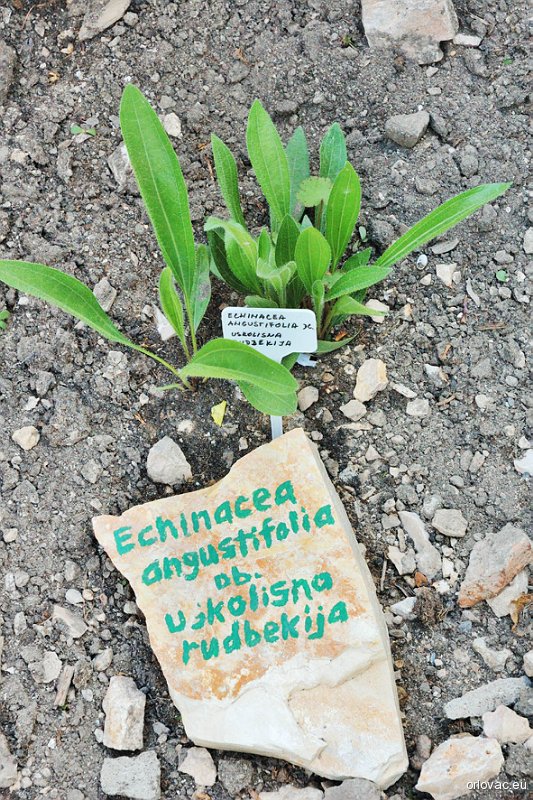 ECHINACEA
ANGUSTIFOLIA
USKOLISNA
RUDBEKIJA
Echinacea
angustifolia
ob.
Uskolisna
rudbekija
orlovac.eu